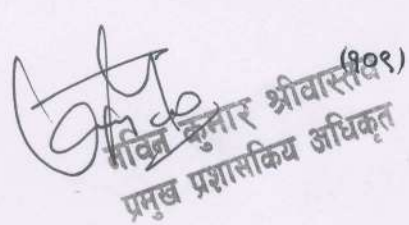 (१०९)
कुमार श्रीवास्तव
प्रमुख प्रशासकिय अधिकृत